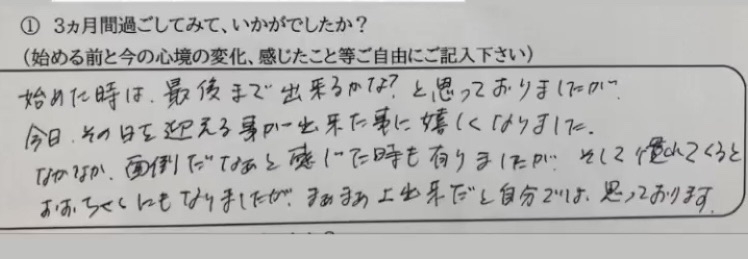 ① 3ヵ月間過ごしてみて、いかがでしたか？
(始める前と今の心境の変化、感じたこと等ご自由にご記入下さい)
始めた時は、最後まで出来るかな？と思っておりましたが、
今日、その日を迎える事が出来た事に嬉しくなりました。
なかなか、面倒だなぁと感じた時も有りましたが、そして慣れてくると
おおちゃくにもなりましたが、まぁまぁ上出来だと自分では、思っております。